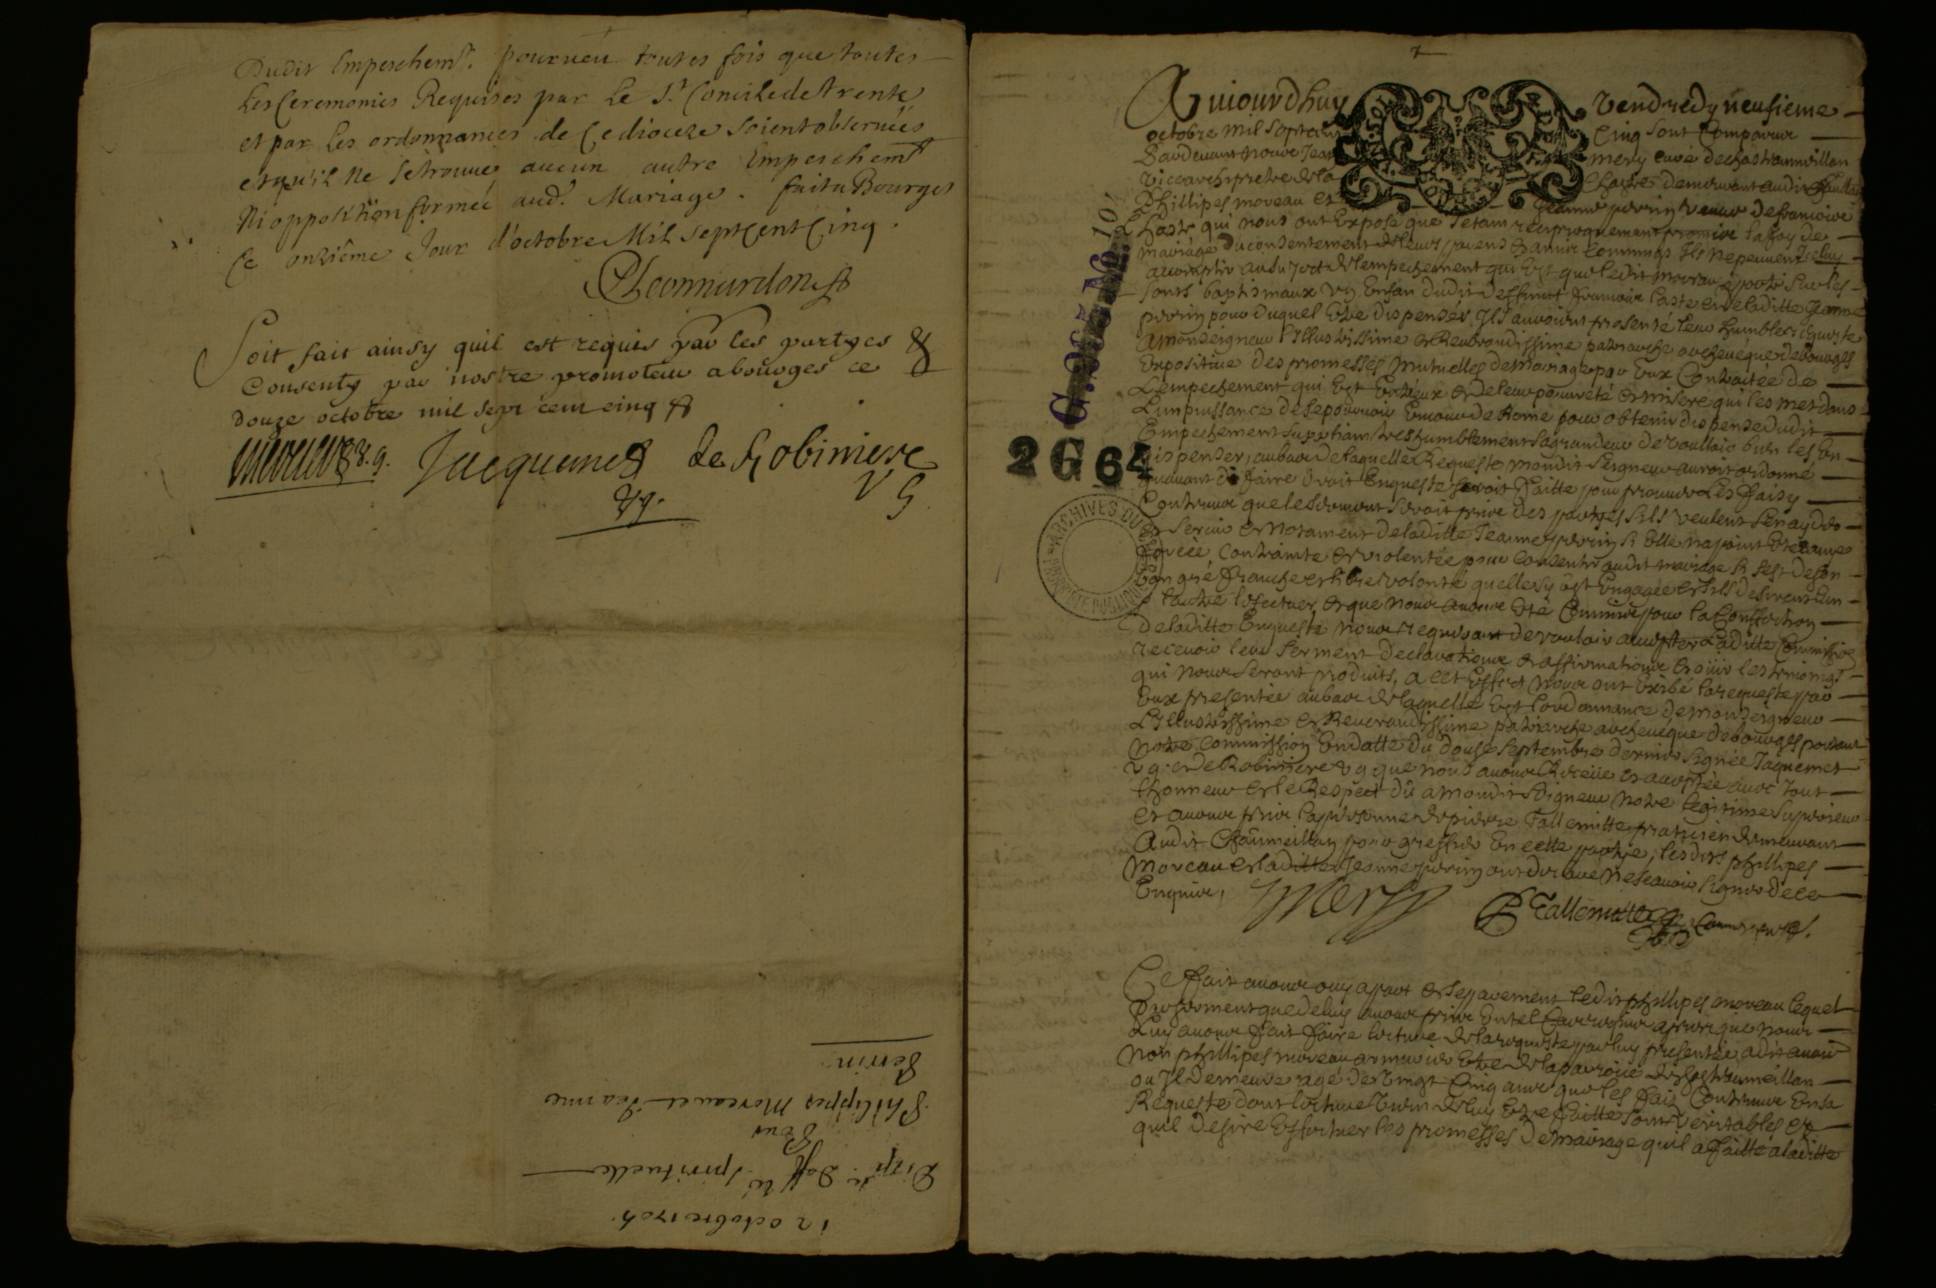 Dudit Empeschemt. pourveu toutes fois que toutes
Les Ceremonies Requises par Le St. Concile de Trente
et par les ordonnances de Ce dioceze soient observées
et qu'il ne se trouve aucun autre Empeschemt
Ni opposition formée aud. Mariage. fait a Bourges
Ce onzième Jour d'octobre Mil sept Cent Cinq.
Soit fait ainsy quil est requis par les partyes &
Consenty par nostre promoteur a bourges ce
douze octobre mil sept cent cinq
v. g. Jacquemet de Robiniere
v g. V G
12 octobre 1705.
Disp. Daffté Spirituelle
Pour
Philippes Moreau et Jeanne
Perrin
Aujourdhuy Vendredy neufieme
octobre mil sept cent Cinq sont Comparus
Pardevant nous Jean mery curé de chasteaumeillan
Vice archiprestre de la Chastre demeurant audit
Phillipes moreau et Jeanne perrin veuve de francois
Laste qui nous ont Exposé que setant reciproquement promise la foy de
mariage du consentement de leurs parens et amis communs Ils ne peuvent
accomplir au sujet de lempechement qui Est que ledit moreau a porté sur les
fonts baptismaux un Enfan dudit deffunct francois Laste et de laditte Jeanne
perrin pour duquel Etre dispensés Ils auroient presenté leur humble requeste
a monseigneur l'Illustrissime et Reverendissime patriarche archevêque de bourges
Expositive des promesses mutuelles de mariage par Eux Contractée de
Lempechement qui Est Entreux et de leur pauvreté et misere qui les met dans
Limpuissance de se pourvoir En cour de Rome pour obtenir dispense dudit
Empechement supliant tres humblement sa grandeur de vouloir bien les En
dispenser, au bas de laquelle Requeste mondit seigneur auroit ordonné
quavant de faire droit Enqueste seroit faitte pour prouver les faits y
Contenus que le serment seroit prise des partyes sils veulent sen ayder
et servir et notament de laditte Jeanne perrin si Elle na point Eté
forcée contrainte et violentée pour Consentir audit mariage si sest de son
bon gré franche et libre volonté quelle sy est Engagée et sils desirent lun
et lautre lefectuer, et que nous avons Eté Commis pour la Confection
de laditte Enqueste nous requerant de vouloir accepter laditte Commission
recevoir leur serment declarations et affirmations et ouir les temoings
qui nous seront produits, a cet Effect nous ont Exibé la requeste par
Eux presentée au bas de laquelle Est lordonnance de monseigneur
L'Illustrissime et Reverendissime patriarche archeveque de bourges portant
notre Commission En datte du douse septembre dernier signée Jaquemet
v g. et de Robiniere v g. que nous avons Receüe et acceptée avec tout
lhonneur et le Respect dû a mondit seigneur notre legitime superieur
et avons prise la personne de pierre Tallemitte praticien demeurant
audit chaumeillan pour greffier En cette partye, lesdits phillipes
moreau et laditte Jeanne perrin ont declaré ne scavoir signer de ce
Enquis,
Mery P Tallemitte
Ce fait avons ouy apart et separement ledit phillipes moreau lequel
Par serment que de luy avons prise En tel Cas requis apres que nous
Luy avons fait faire lecture de la requeste par luy presentée a dit avoir
Nom phillipes moreau Etre de la paroisse de chasteaumeillan
ou Il demeure agé de Vingt Cinq ans que les fais Contenus En sa
Requeste dont lecture Vient de luy Etre faitte sont veritables et
quil desire Effectuer les promesses de mariage quil a faitte a laditte
2 G 64
ARCHIVES DU CHER